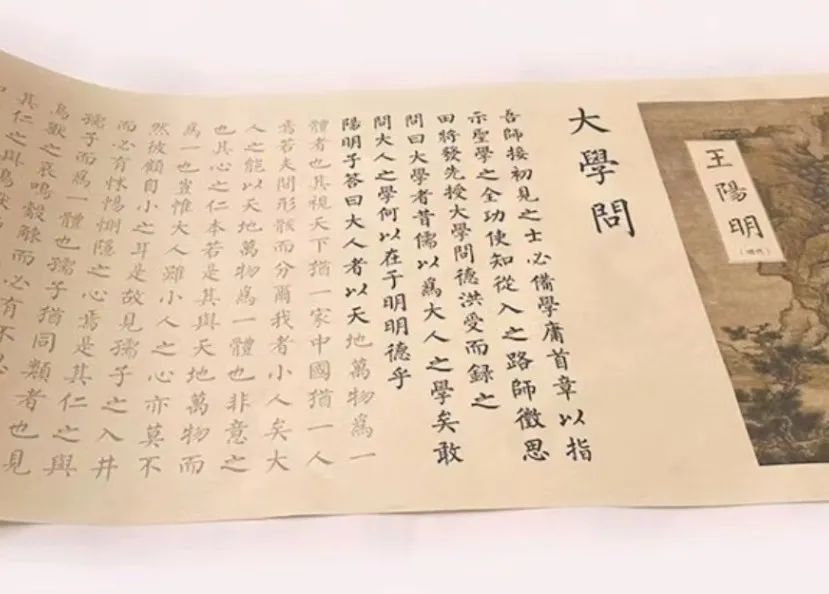 王陽明
(明代)
大學問
吾師接初見之士必備學庸首章以指
示聖學之全功使知從入之路師徵思
田將發先授大學問德洪受而録之
問曰大學者昔儒以爲大人之學矣敢
問大人之學何以在于明明德乎
陽明子答曰大人者以天地萬物爲一
體者也其視天下猶一家中國猶一人
焉若夫間形骸而分爾我者小人矣大
人之能以天地萬物爲一體也非意之
也其心之仁本若是其與天地萬物而
爲一也豈惟大人雖小人之心亦莫不
然彼顧自小之耳是故見孺子之入井
而必有怵惕惻隱之心焉是其仁之與
孺子而爲一體也孺子猶同類者也見
鳥獸之哀鳴觳觫而必有不忍
其仁之與鳥獸